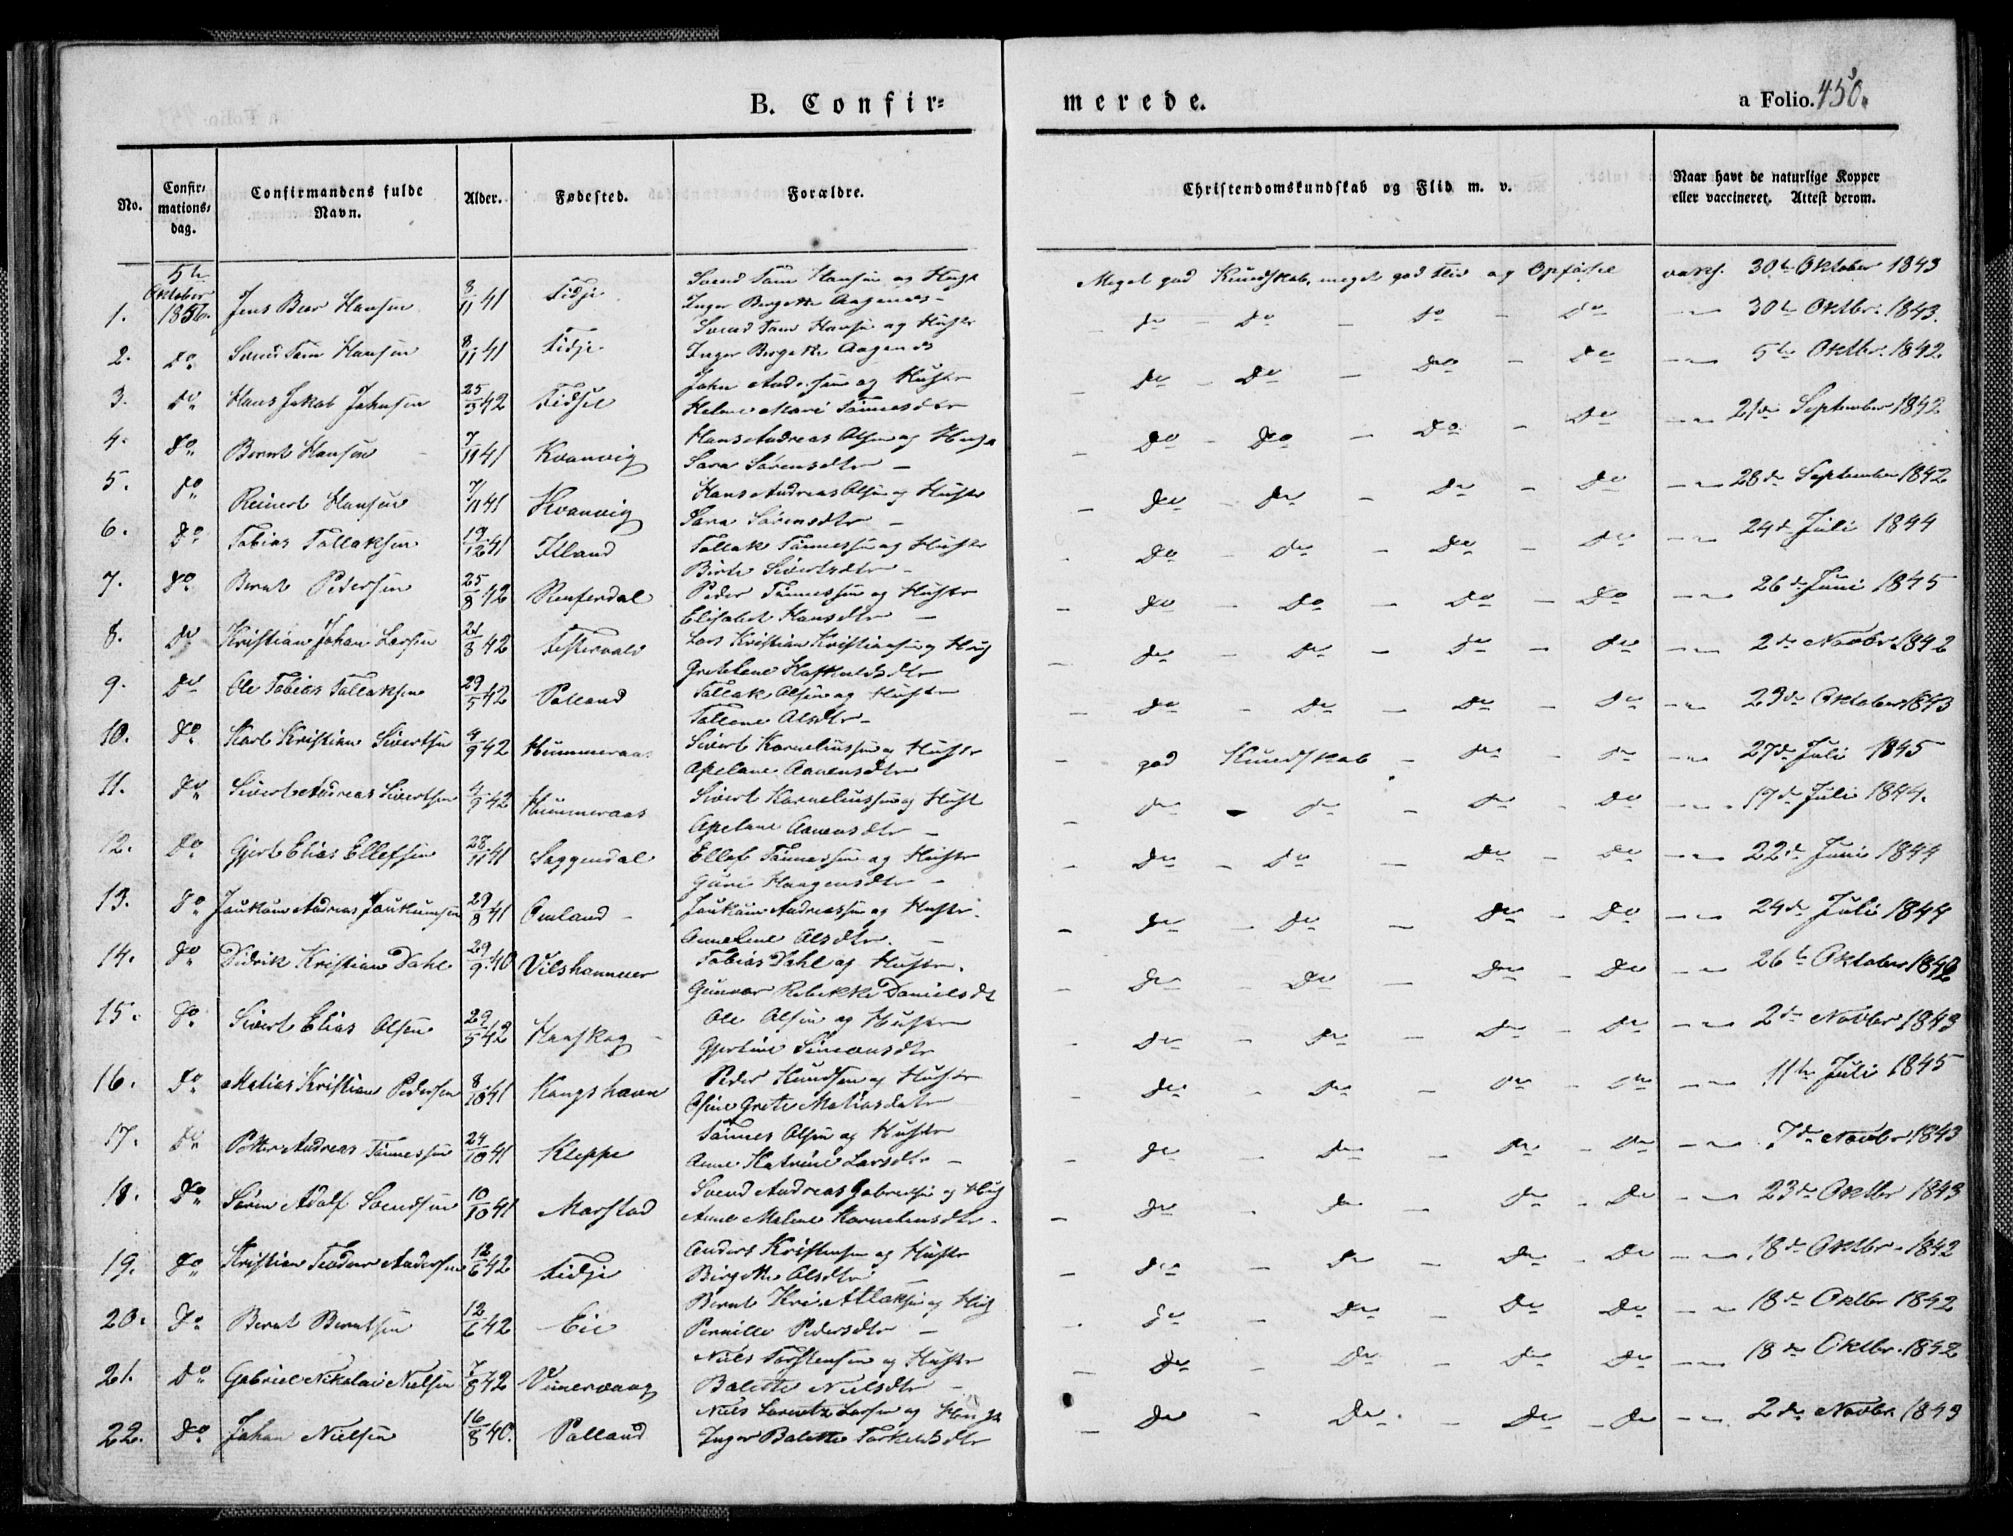 B. Confir=
merede.
a Folio. 450.
No.
Confir=
mations=
dag.
Confirmandens fulde
Navn.
Alder.
Fødested.
Forældre.
Christendomskundskab og Flid m. v.
Naar havt de naturlige Kopper
eller vaccineret. Attest derom.
5te
Oktober
1856.
1. Jens Beer Hansen 8/11 41 Fidje Svend Tam Hansen og Hust Inger Birgette Aagenæs - Meget god Kundskab, meget god Flid og Opførsel vakc. 30te Oktober 1843
2. Do Svend Tam Hansen 8/11 41 Fidje Svend Tam Hansen og Hustr Inger Birgette Aagenæs - do - Do - Do - Do - 30te Oktbr. 1843.
3. Do Hans Jakob Johnsen 25/3 42 Fidsel John Andersen og Hustr Helene Marie Tønnesdtr - Do - Do - Do - Do - 5te Oktbr. 1842
4. Do Bernt Hansen 7/11 41 Kvanvig Hans Andreas Olsen og Hust Sara Sørensdtr - Do - Do - Do - Do - 21de September 1842
5. Do Reinert Hansen 7/11 41 Kvanvig Hans Andreas Olsen og Hustr Sara Sørensdtr - Do - Do - Do - Do - 28de September 1842
6. Do Tobias Tallaksen 19/12 41 Itland Tallak Tønnessen og Hustr Birte Sivertsdtr - Do - Do - Do - Do - 24de Juli 1844
7. Do Bernt Pedersen 25/8 42 Rensferdal Peder Tønnessen og Hustr Elisabet Hansdtr - Do - Do - Do - Do - 26de Juni 1845
8. Do Kristian Johan Larsen 21/8 42 Festervold Lars Kristian Kristiansen og Hust Gretelene Haftvaldsdtr - Do - Do - Do - Do - 2de Novbr 1842
9. Do Ole Tobias Tallaksen 29/5 42 Salland Tallak Olsen og Hustr Tallene Olsdtr - Do - Do - Do - Do - 23de Oktober 1843
10. Do Karl Kristian Sivertsen 4/9 42 Hummeraas Sivert Korneliussen og Hustr Apelone Aanensdtr - god Kundskab - Do - Do - 27de Juli 1845
11. Do Sivert Andreas Sivertsen 4/9 42 Hummeraas Sivert Korneliussen og Hust Apelone Aanensdtr - Do - Do - Do - Do - 17de Juli 1844.
12. Do Gjert Elias Ellefsen 28/11 41 Saggendal Ellef Tønnessen og Hustr Guri Haagensdtr - Do - Do - Do - Do - 22de Juni 1844
13. Do Joukum Andreas Joukumsen 29/8 41 Omland - Joukum Andreassen og Hustr. Annelene Olsdtr. - Do - Do - Do - Do - 24de Juli 1844
14. Do Didrik Kristian Dahl 29/9 40 Vilshammer Tobias Dahl og Hustr. Gunvor Rebekke Danielsdt - Do - Do - Do - Do - 26te Oktober 1842
15. Do Sivert Elias Olsen 29/5 42 Haaskog - Ole Olsen og Hustr Gjertine Simonsdtr - Do - Do - Do - Do - 2de Novbr 1843
16. Do Matias Kristian Pedersen 8/10 41 Kongshavn Peder Knudsen og Hustr Osine Grete Matiasdatr - Do - Do - Do - Do - 11te Juli 1845
17. Do Petter Andreas Tønnessen 24/10 41 Kleppe Tønnes Olsen og Hustr Anne Katrine Larsdtr - Do - Do - Do - Do - 7de Novbr 1843
18. Do Søren Adolf Svendsen 10/10 41 Morstad Svend Andreas Gabrielsen og Hust Anne Malene Korneliusdtr. - Do - Do - Do - Do - 23de Oktbr 1843
19. Do Kristian Teodor Andersen 12/6 42 Fidje Anders Kristensen og Hustr Birgette Olsdtr - Do - Do - Do - Do - 18de Oktbr. 1842
20. Do Bernt Berntsen 12/6 42 Eie Bernt Kri Atlaksen og Hust Pernille Pedersdtr - Do - Do - Do - Do - 18de Oktbr 1842
21. Do Gabriel Nikolai Nielsen 7/8 42 Vimervaag Niels Torstensen og Hustr Balette Nielsdtr - Do - Do - Do - Do - 18de Oktbr. 1842
22. Do Johan Nielsen 16/8 40. Salland Niels Lorentz Larsen og Hust Inger Balette Torkelsdtr - Do - Do - Do - Do - 2de Novbr 1843